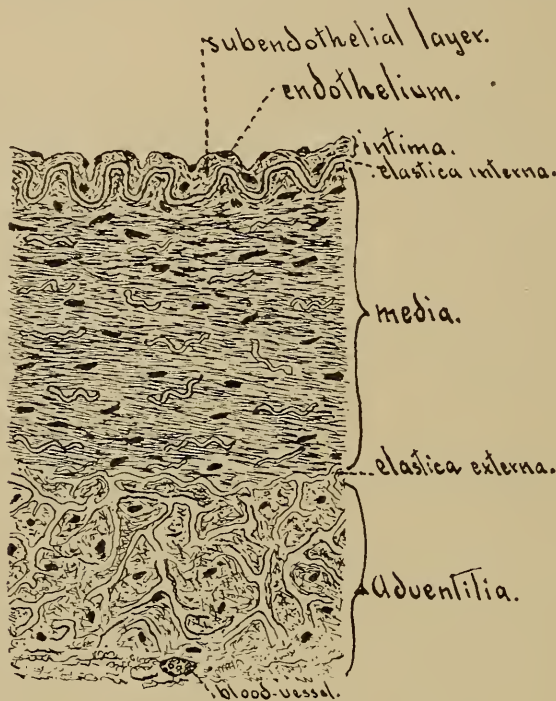 subendothelial layer.
endothelium.
intima.
elastica interna.
media.
elastica externa.
Adventitia.
blood-vessel.